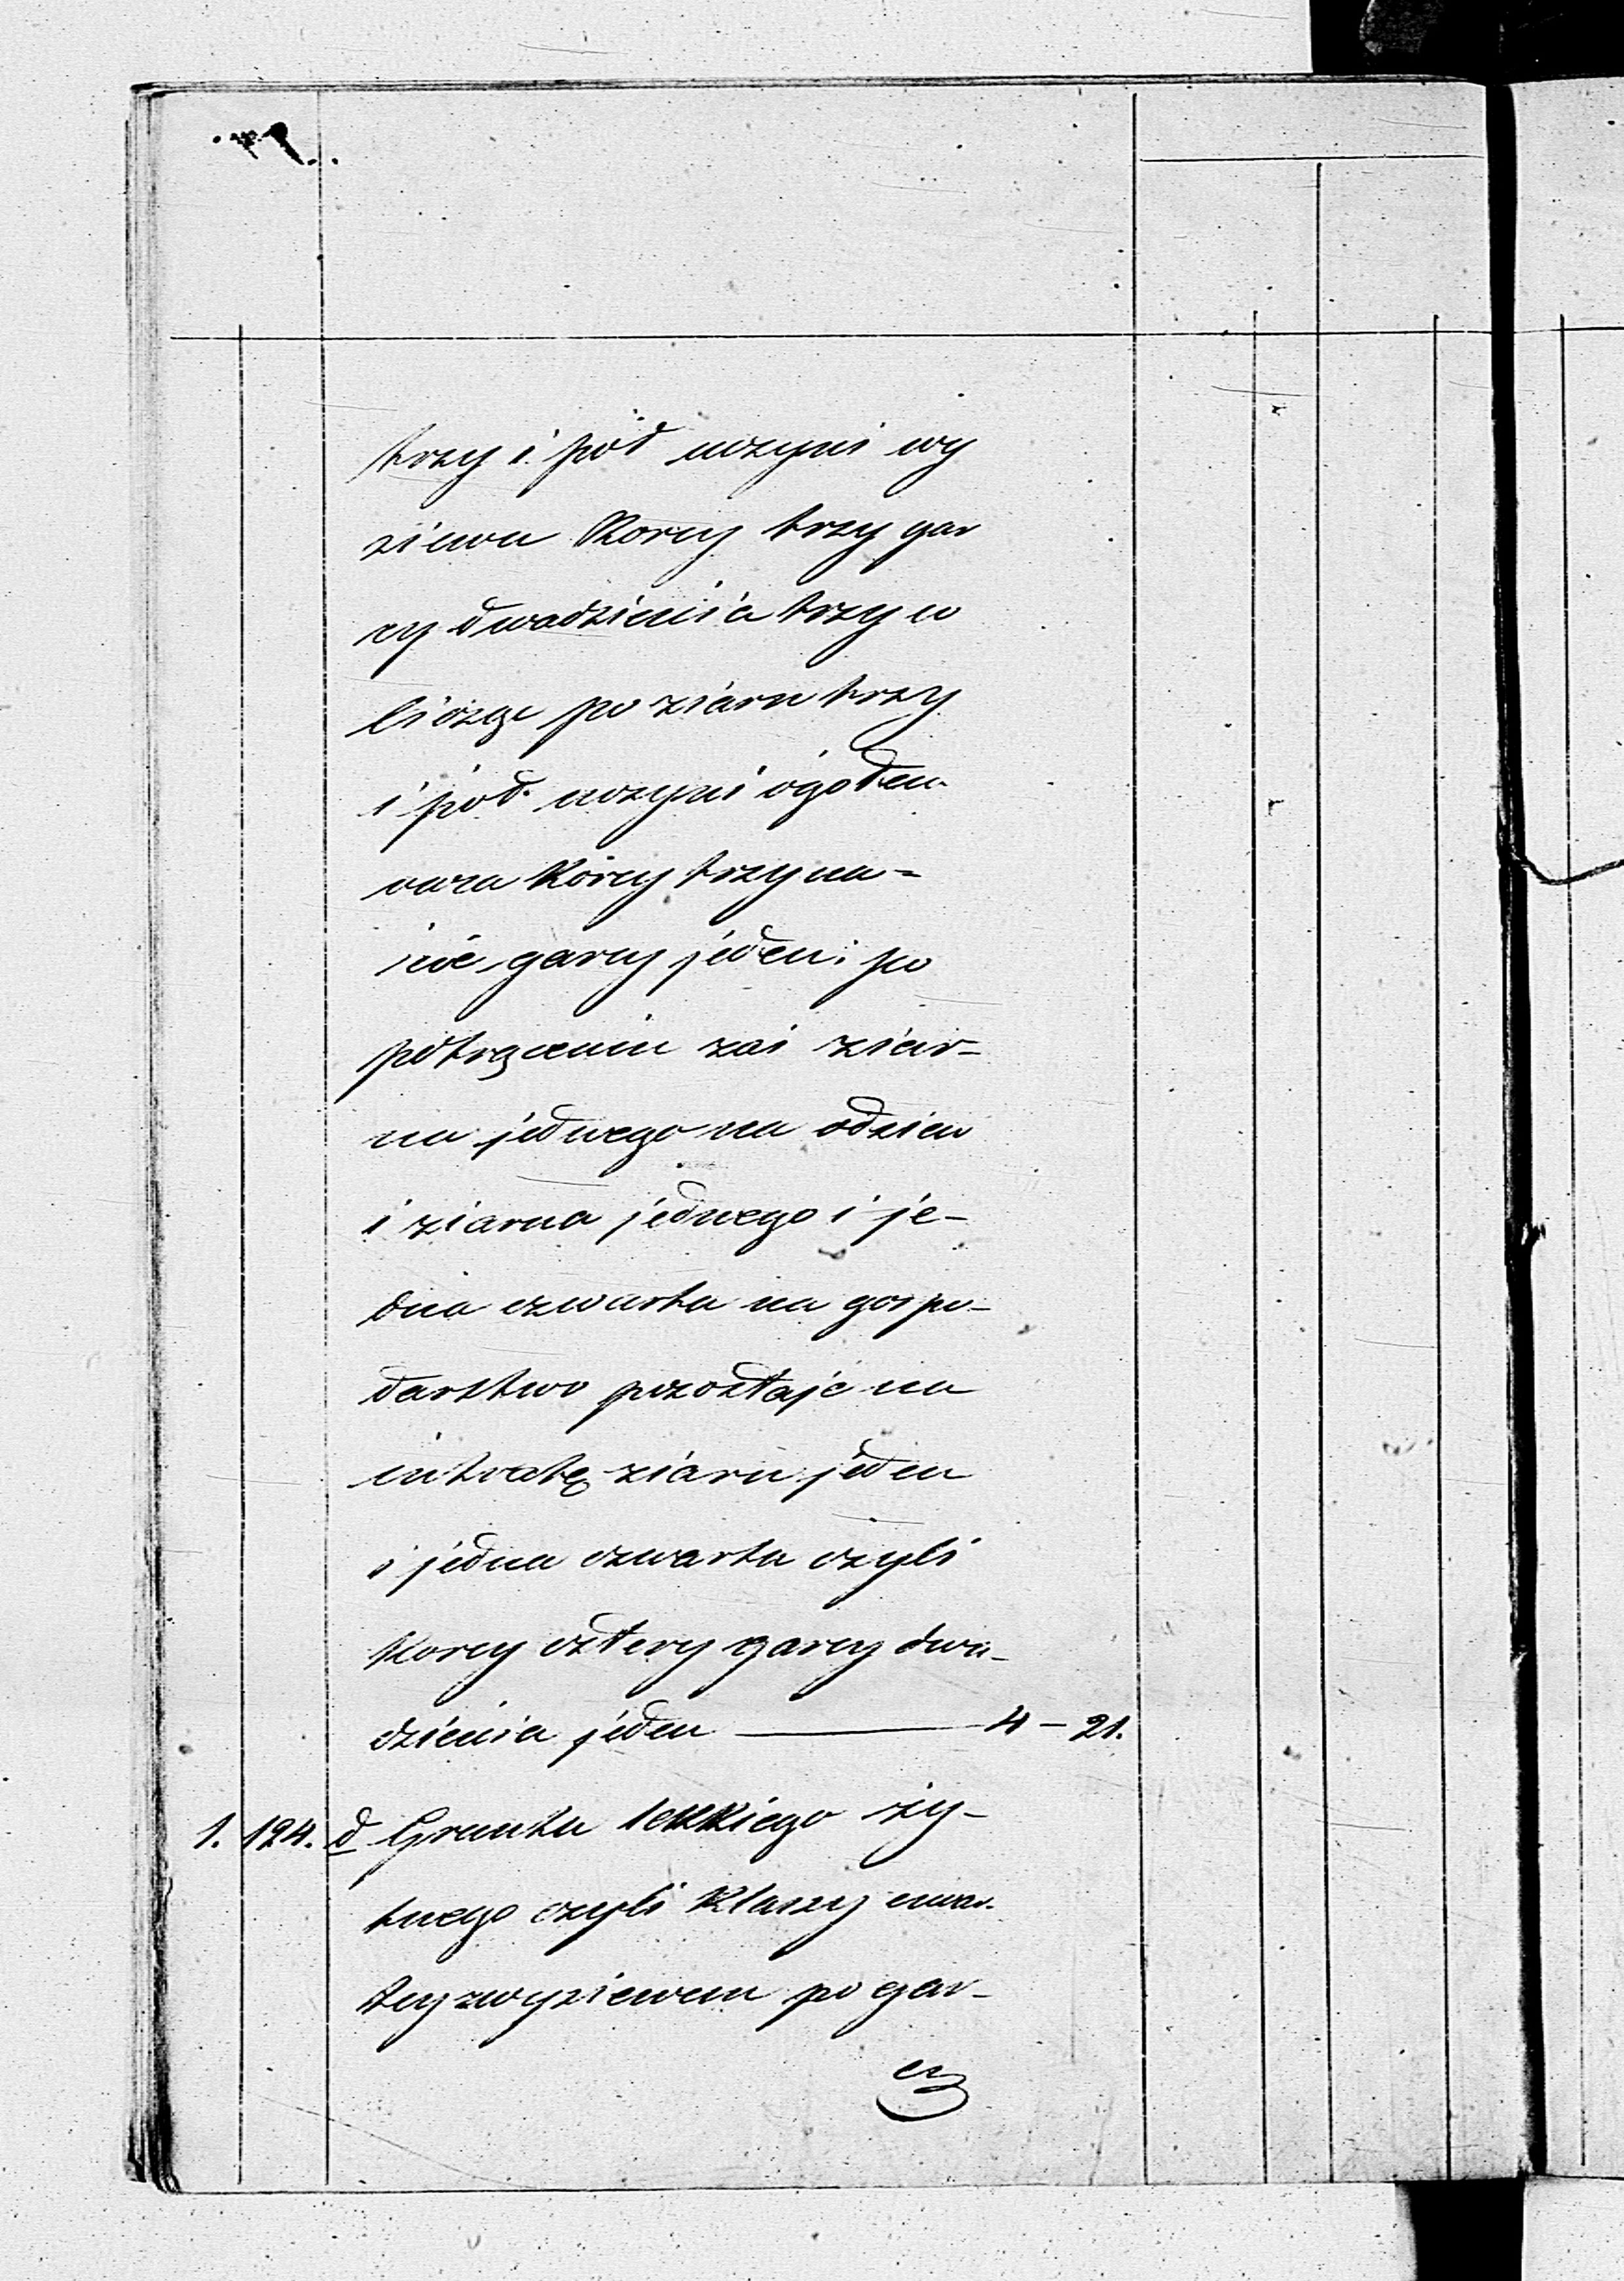 trzy i pół uczyni wy
siewu Korcy trzy gar
cy dwadzieścia trzy w
licząc po ziarn trzy
i pół uczyni ogółem
Korcy trzyna-
ście garcy jeden: po
potrąceniu zaś ziar-
na jednego na odsiew
i ziarna jednego i je-
dna czwarta na gospo-
darstwo pozostaje na
intratę ziarn jeden
i jedna czwarta czyli
Korcy cztery garcy dwa-
dzieścia jeden — 4 — 21.
1. 124. d Gruntu lekkiego ży-
tnego czyli Klassy czwar
tey z wysiewem po gar-
cy